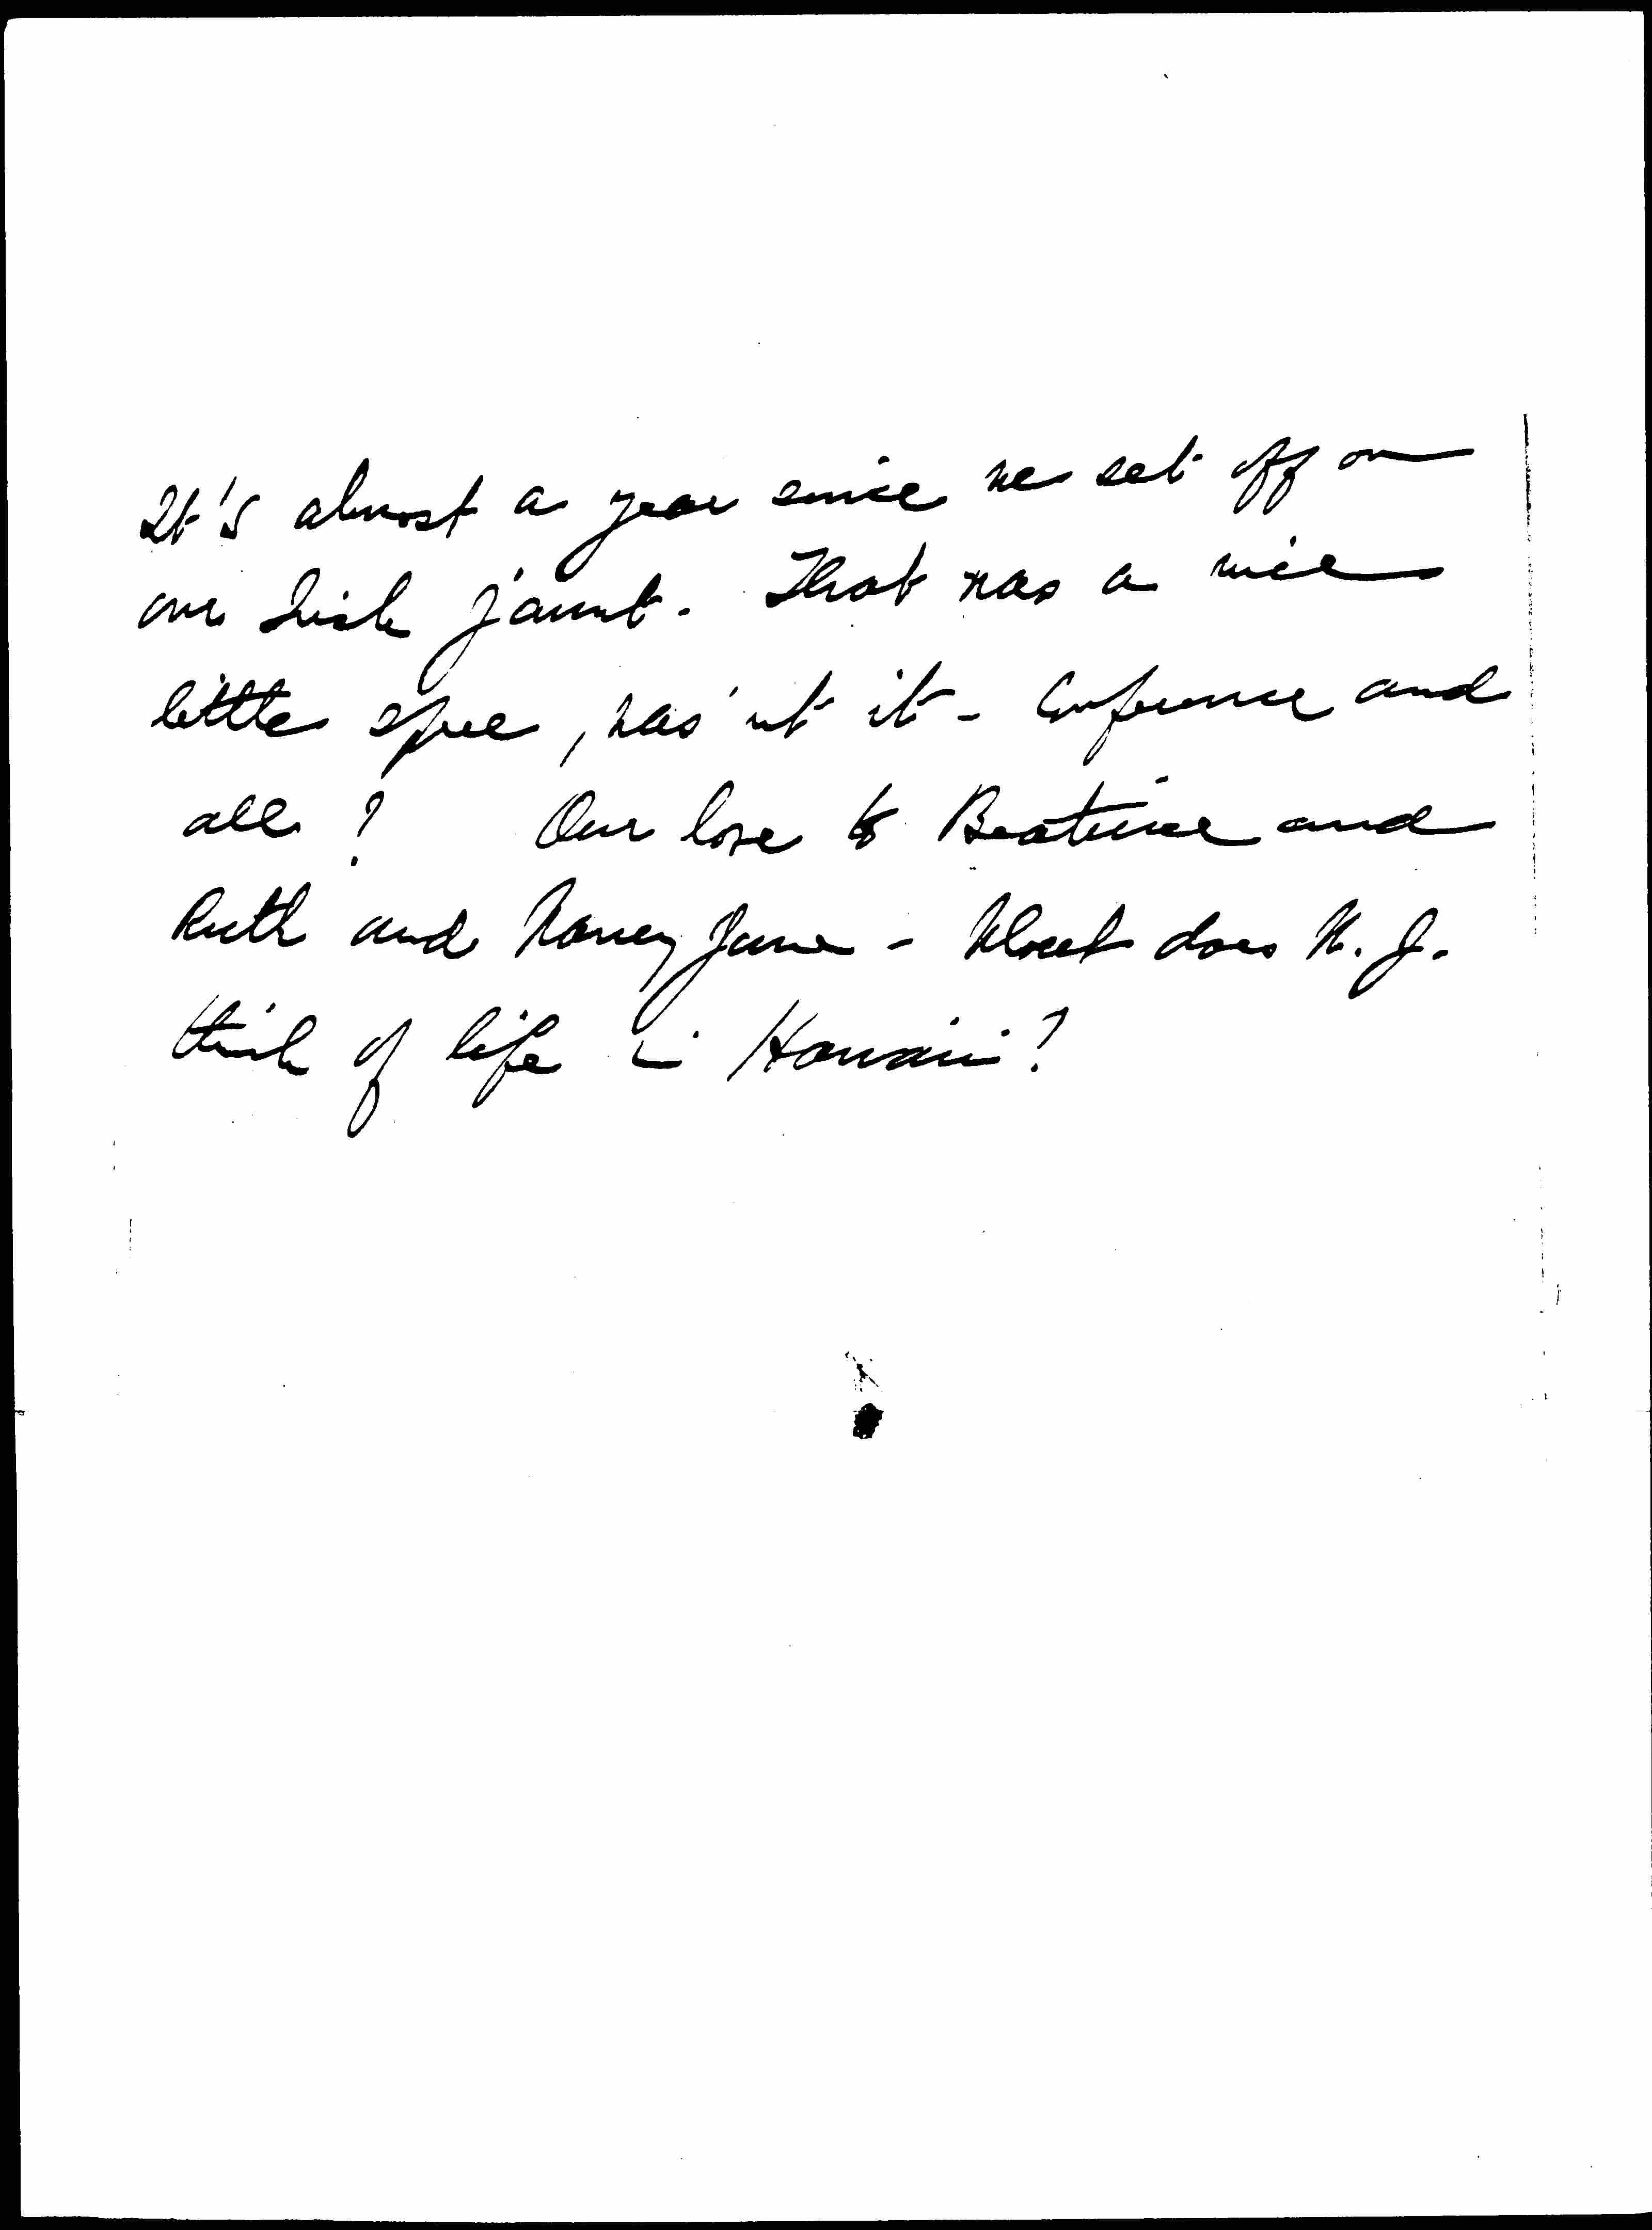 It's almost a year since we set off on
our Irish jaunt. That was a nice
little spree, was'nt it - Conference and
all? Our love to Beatrice and
Ruth and Nancy Jane - What does N. J.
think of life in Hawaii?